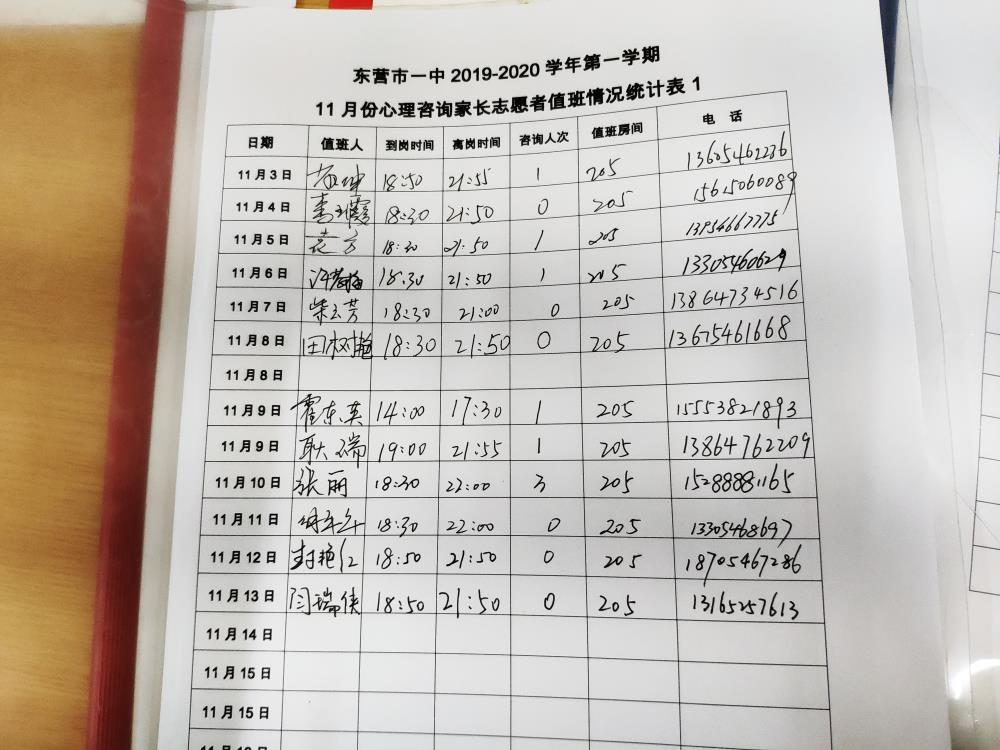 东营市一中 2019-2020 学年第一学期
11 月份心理咨询家长志愿者值班情况统计表 1
日期 值班人 到岗时间 离岗时间 咨询人次 值班房间 电 话
11 月 3 日 18:50 21:55 1 205 13605462236
11 月 4 日 18:30 21:50 0 205 15615060089
11 月 5 日 袁方 18:30 21:50 1 205
11 月 6 日 18:30 21:50 1 205 13305460629
11 月 7 日 柴云芳 18:30 21:00 0 205 13864734516
11 月 8 日 田树艳 18:30 21:50 0 205 13675461668
11 月 8 日
11 月 9 日 霍东英 14:00 17:30 1 205 15553821893
11 月 9 日 耿瑞 19:00 21:55 1 205 13864762209
11 月 10 日 张丽 18:30 22:00 3 205 15288881165
11 月 11 日 18:30 22:00 0 205 13305468697
11 月 12 日 封艳红 18:50 21:50 0 205 18705467286
11 月 13 日 闫瑞侠 18:50 21:50 0 205 13165257613
11 月 14 日
11 月 15 日
11 月 15 日